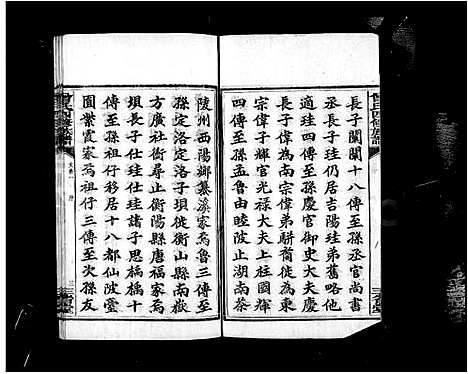 長子闡闡十八傳至孫丞官尚書
丞子珪仍居吉陽珪弟舊略他
適珪四傳至孫慶官御史大夫慶
長子偉為南宗偉弟駢耆徙為東
宗偉子輝官光祿大夫上柱國輝
四傳至孫孟魯由睦陂止湖南茶
陵州西陽鄉藂溙家焉魯三傳至
孫定洛定洛子塤徙衡山縣南嶽
方廣社衙尋止衡陽縣唐福家焉
塤長子仕珪仕珪諸子思楀楀十
傳至孫祖仔移居十八都仙陂堂
園紫霞家焉祖仔三傳至次孫友